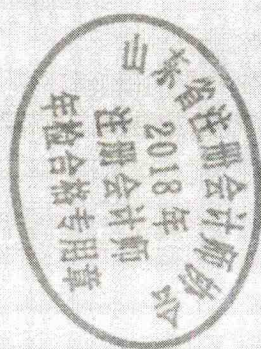 山东省注册会计师协会
2018年
注册会计师
年检合格专用章